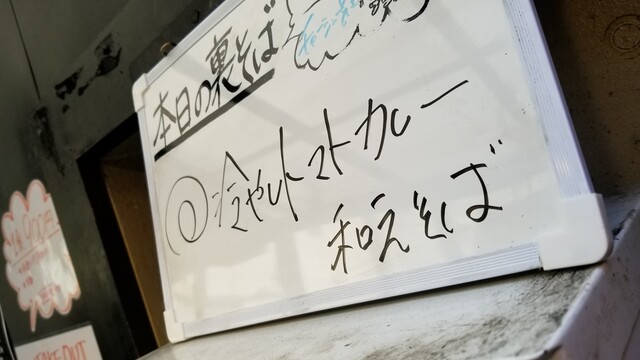 本日の裏そば
@冷やしトマトカレー
和えそば
TAKE OUT